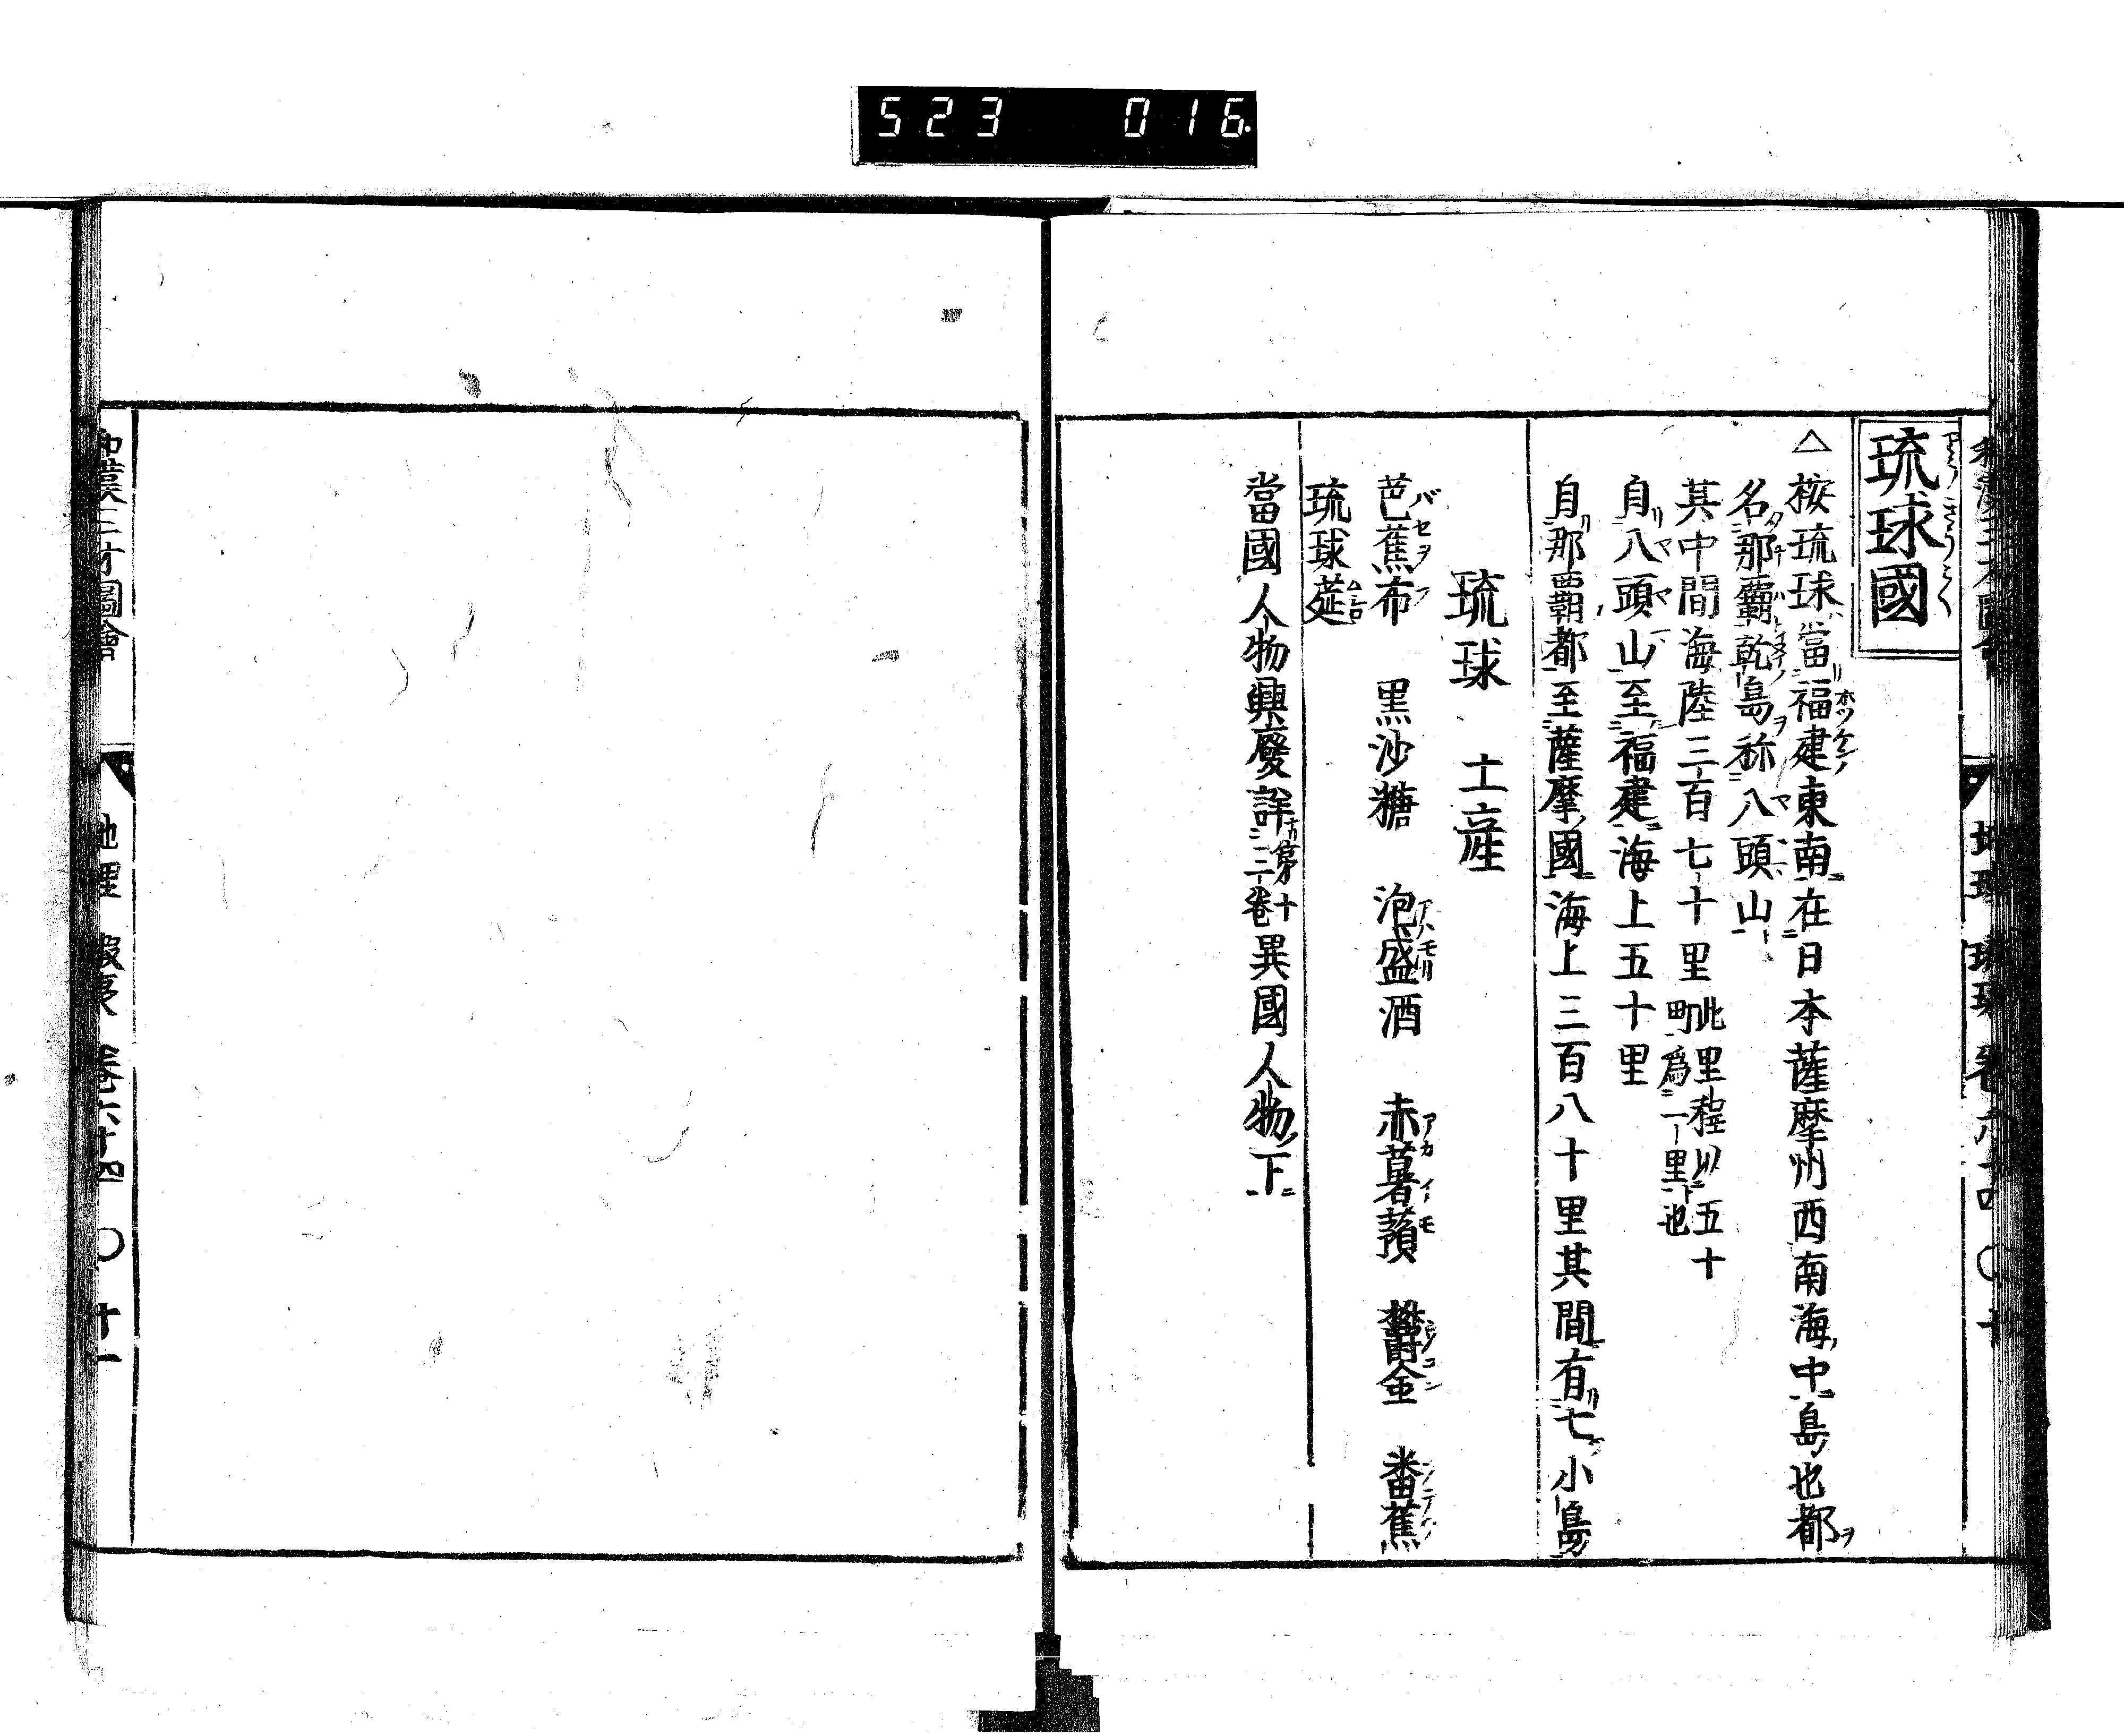 523 016
琉球國
△按琉球當福建東南在日本薩摩州西南海中島也都
名那覇乾島称八頭山
其中間海陸三百七十里此里程以五十町爲一里也
自八頭山至福建海上五十里
自那覇都至薩摩國海上三百八十里其間有七小島
琉球 土産
芭蕉布 黒沙糖 泡盛酒 赤薯蕷 欝金 番蕉
バセヲフ アハモリ アカイモ ウコン
琉球莚
當國人物興廢詳第十三卷異國人物下
和漢三才圖會 地理 蝦夷 卷六十四 〇 十一